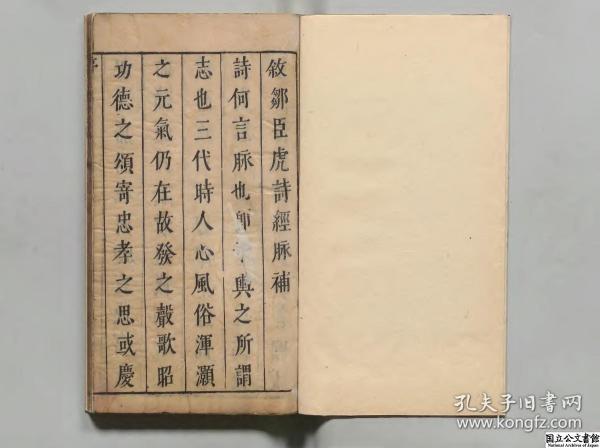 敘鄒臣虎詩經脉補
詩何言脉也即子輿之所謂
志也三代時人心風俗渾灝
之元氣仍在故發之聲歌昭
功德之頌寄忠孝之思或慶
孔夫子旧书网
www.kongfz.com
国立公文書館
National Archives of Japan